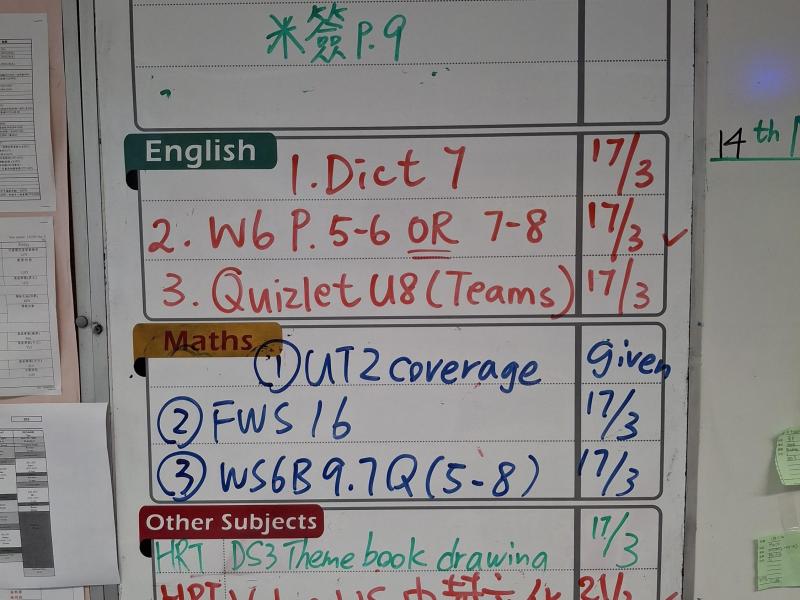 米簽P.9
14th
English
1. Dict 7 17/3
2. W6 P. 5-6 OR 7-8 17/3 ✓
3. Quizlet U8 (Teams) 17/3
Maths
① UT2 coverage given
② FWS 16 17/3
③ WS6B 9.7Q (5-8) 17/3
Other Subjects
HRT DS3 Theme book drawing 17/3
HRT